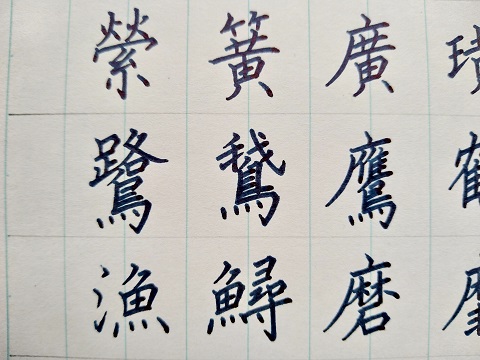 縈 簧 廣
鷺 鵝 鷹
漁 鱘 磨